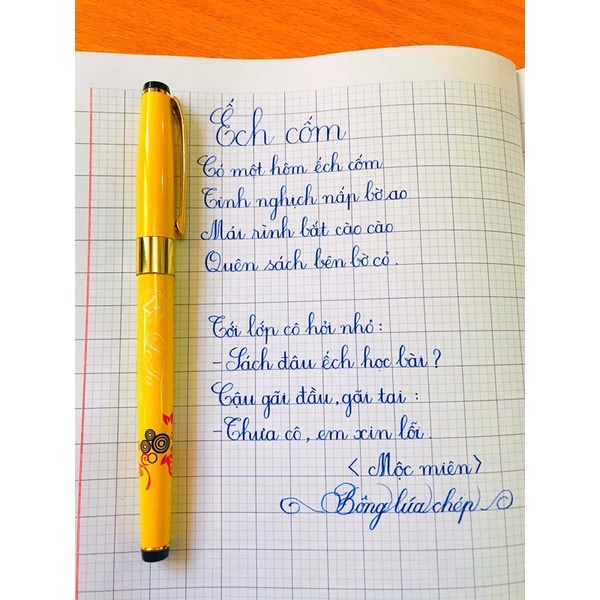 Ếch cốm
Có một hôm ếch cốm
Tinh nghịch nấp bờ ao
Mải rình bắt cào cào
Quên sách bên bờ cỏ.
Tới lớp cô hỏi nhỏ:
-Sách đâu ếch học bài?
Cậu gãi đầu, gãi tai:
-Thưa cô, em xin lỗi.
<Mộc miên>
Bông lúa chép